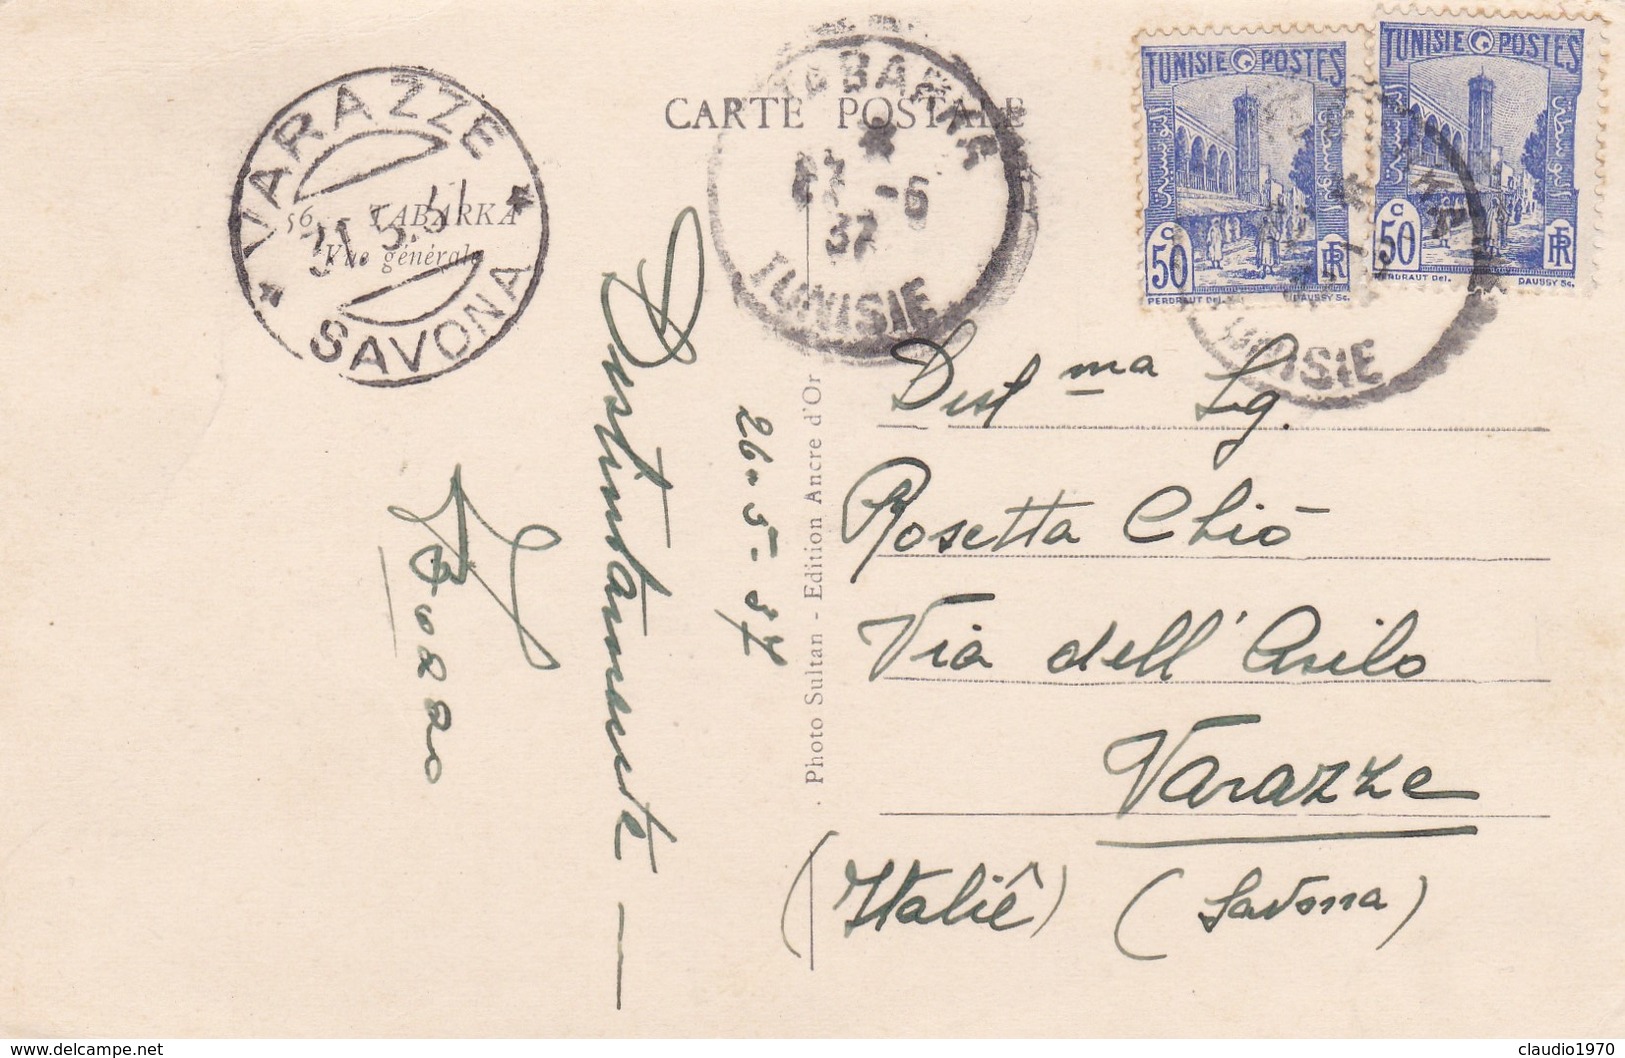 CARTE POSTALE
VARAZZE
SAVONA
56. TABARKA
Vue générale
TABARKA
37
TUNISIE
TUNISIE POSTES
50 C
RF
PERDRAUT Del. DAUSSY Sc.
TUNISIE POSTES
50 C
RF
PERDRAUT Del. DAUSSY Sc.
Distintamente
26-5-37
Photo Sultan - Edition Ancre d'Or
Dist ma Sg.
Rosetta Chiò
Via dell' Asilo
Varazze
(Italiê) (Savona)
claudio1970